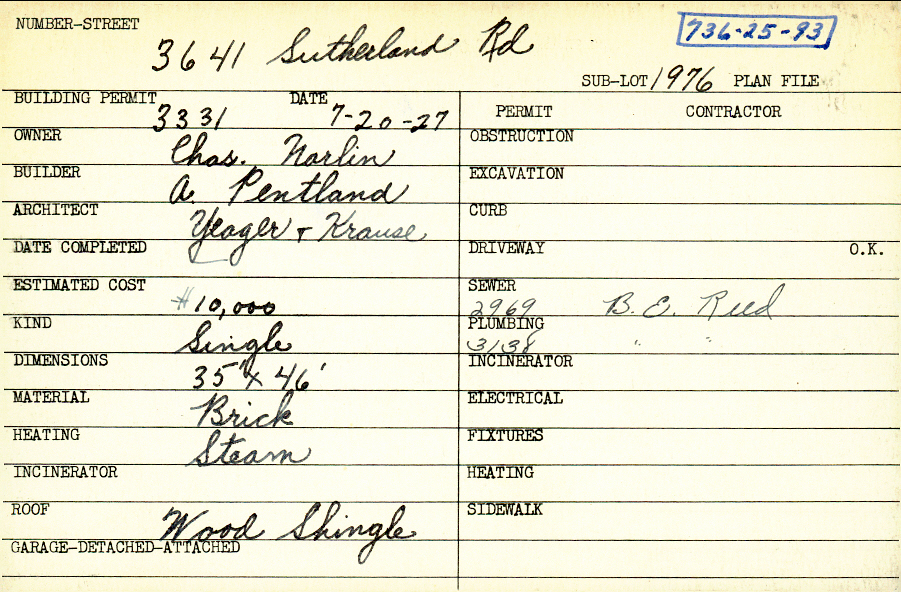 NUMBER-STREET
736-25-93
3641 Sutherland Rd
SUB-LOT 1976 PLAN FILE
BUILDING PERMIT DATE
3331 7-20-27
PERMIT CONTRACTOR
OWNER
Chas. Norlin
BUILDER
A. Pentland
ARCHITECT
Yeager + Krause
DATE COMPLETED
ESTIMATED COST
$10,000
KIND
Single
DIMENSIONS
35' x 46'
MATERIAL
Brick
HEATING
Steam
INCINERATOR
ROOF
Wood Shingle
GARAGE-DETACHED-ATTACHED
OBSTRUCTION
EXCAVATION
CURB
DRIVEWAY O.K.
SEWER
2969 B. E. Reed
PLUMBING
3138 " "
INCINERATOR
ELECTRICAL
FIXTURES
HEATING
SIDEWALK